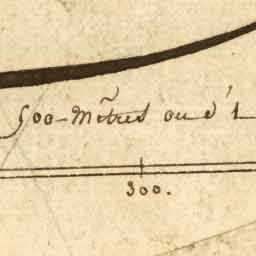 500 Mètres ou d'1
300.